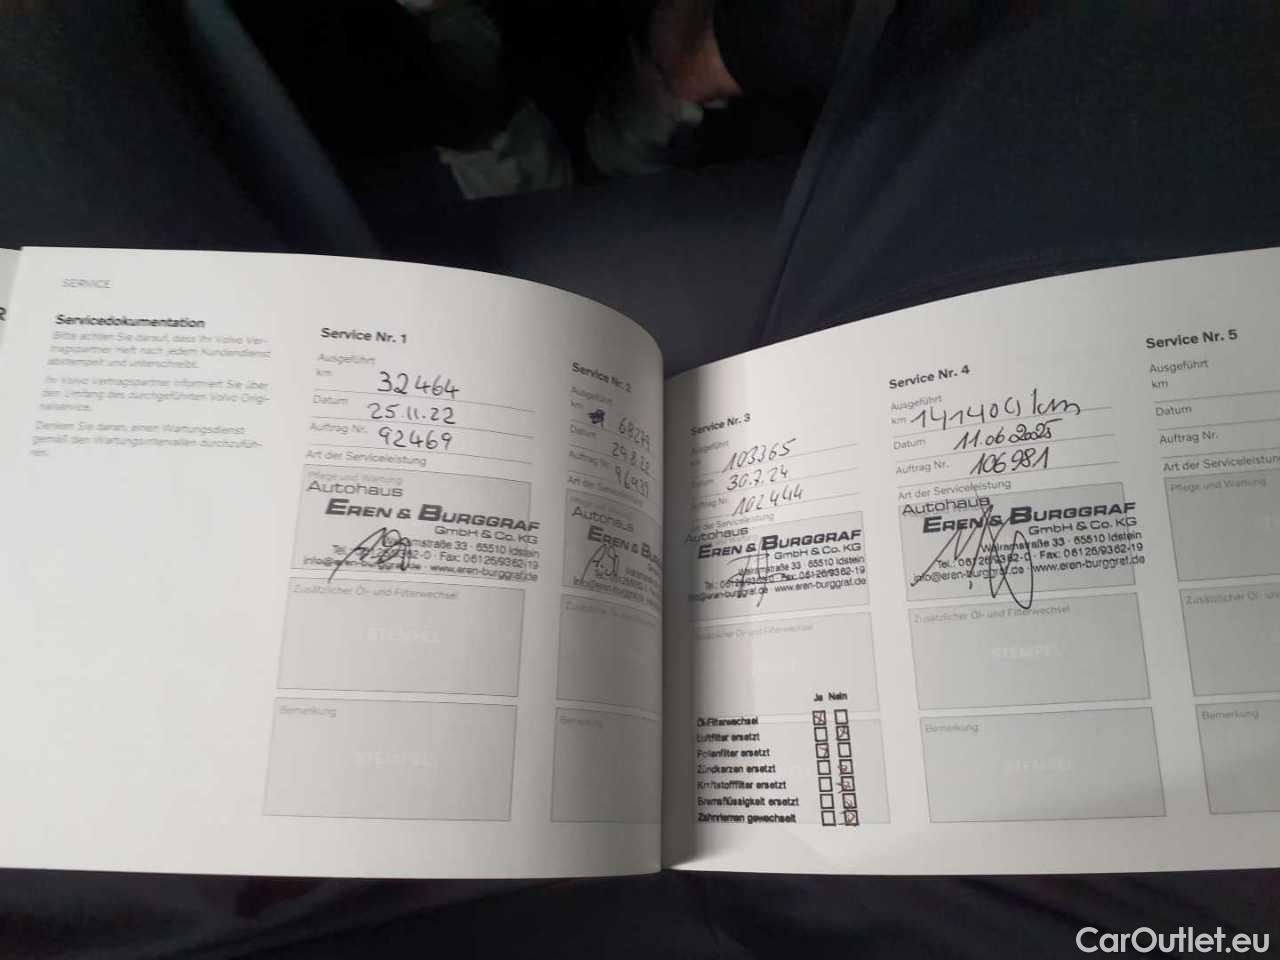 SERVICE
Servicedokumentation
Bitte achten Sie darauf, dass Ihr Volvo Ver-
tragspartner Heft nach jedem Kundendienst
abstempelt und unterschreibt.
Ihr Volvo Vertragspartner informiert Sie über
den Umfang des durchgeführten Volvo Origi-
nalservice.
Denken Sie daran, einen Wartungsdienst
gemäß den Wartungsintervallen durchzufüh-
ren.
Service Nr. 1
Ausgeführt
km 32464
Datum 25.11.22
Auftrag Nr. 92469
Art der Serviceleistung
Pflege und Wartung
Autohaus
EREN & BURGGRAF
GmbH & Co. KG
Walramstraße 33 · 65510 Idstein
Tel. 06126/9362-0 · Fax: 06126/9362-19
info@eren-burggraf.de · www.eren-burggraf.de
Zusätzlicher Öl- und Filterwechsel
STEMPEL
Bemerkung
STEMPEL
Service Nr. 2
Ausgeführt
km
Datum
Auftrag Nr.
Art der Serviceleistung
Autohaus
EREN & BU
Bemerkung
Service Nr. 3
Ausgeführt
103365
Datum 30.7.24
Auftrag Nr. 102444
Art der Serviceleistung
Autohaus
EREN & BURGGRAF
GmbH & Co. KG
Walramstraße 33 · 65510 Idstein
Tel.: 06126/9362-0 · Fax: 06126/9362-19
info@eren-burggraf.de · www.eren-burggraf.de
Zusätzlicher Öl- und Filterwechsel
Ja Nein
Öl-Filterwechsel
Luftfilter ersetzt
Pollenfilter ersetzt
Zündkerzen ersetzt
Kraftstofffilter ersetzt
Bremsflüssigkeit ersetzt
Zahnriemen gewechselt
Service Nr. 4
Ausgeführt
km km
Datum 11.06 2025
Auftrag Nr. 106981
Art der Serviceleistung
Autohaus
EREN & BURGGRAF
GmbH & Co. KG
Walramstraße 33 · 65510 Idstein
Tel.: 06126/9362-0 · Fax: 06126/9362-19
info@eren-burggraf.de · www.eren-burggraf.de
Zusätzlicher Öl- und Filterwechsel
STEMPEL
Bemerkung
STEMPEL
Service Nr. 5
Ausgeführt
km
Datum
Auftrag Nr.
Art der Serviceleistung
Pflege und Wartung
Zusätzlicher Öl- und
Bemerkung
CarOutlet.eu